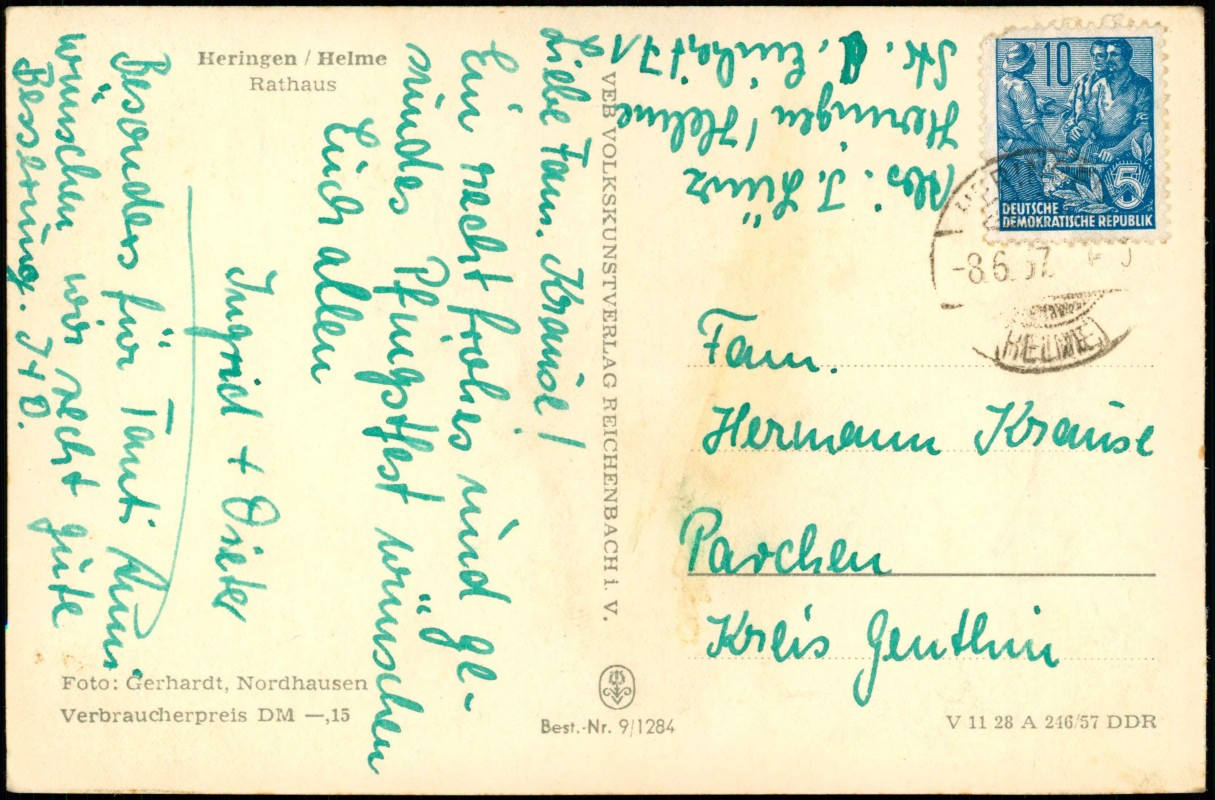 Heringen / Helme
Rathaus
Liebe Fam. Krause!
Ein recht frohes und ge-
sundes Pfingstfest wünschen
Euch allen
Ingrid + Dieter
Besonders für Tante
wünschen wir recht gute
Besserung. I+D.
Abs: I.
Heringen / Helme
Str. d. Einheit 71
VEB VOLKSKUNSTVERLAG REICHENBACH i. V.
10
5
DEUTSCHE
DEMOKRATISCHE REPUBLIK
-8.6.57
(HELME)
Fam.
Hermann Krause
Parchen
Kreis Genthin
Foto: Gerhardt, Nordhausen
Verbraucherpreis DM —,15
Best.-Nr. 9/1284
V 11 28 A 246/57 DDR